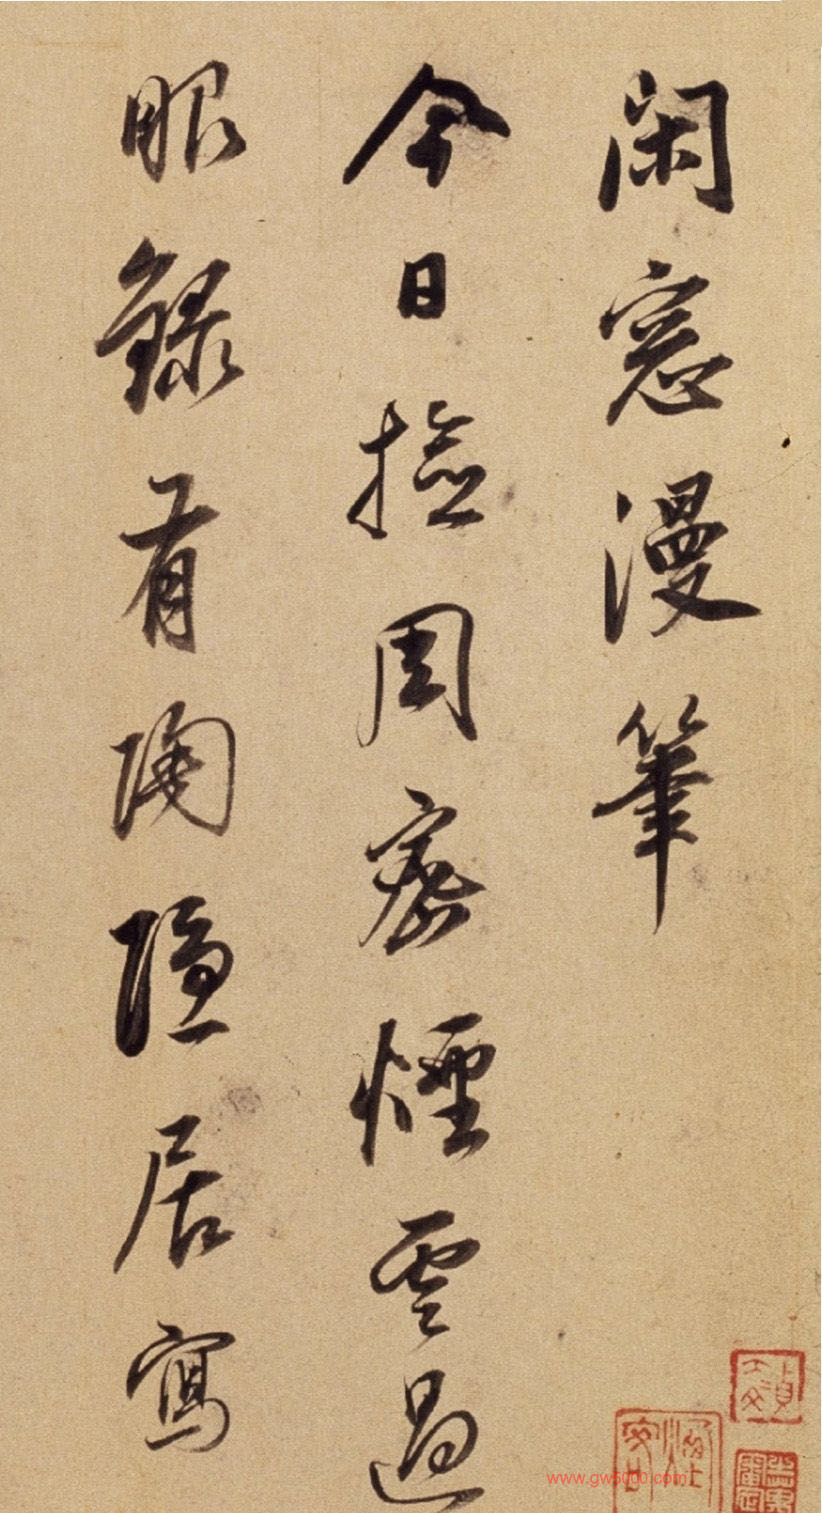 閑窓漫筆
今日撿周密煙雲過
眼録有陶隱居寫
www.gw5000.com